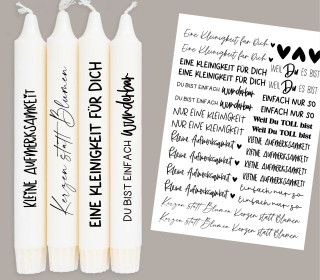 KLEINE AUFMERKSAMKEIT
Kerzen statt Blumen
EINE KLEINIGKEIT FÜR DICH
DU BIST EINFACH Wunderbar
Eine Kleinigkeit für Dich
Eine Kleinigkeit für Dich
EINE KLEINIGKEIT FÜR DICH
EINE KLEINIGKEIT FÜR DICH
DU BIST EINFACH Wunderbar
DU BIST EINFACH Wunderbar
NUR EINE KLEINIGKEIT
NUR EINE KLEINIGKEIT
Kleine Aufmerksamkeit
Kleine Aufmerksamkeit
Kleine Aufmerksamkeit
Kleine Aufmerksamkeit
Kerzen statt Blumen
Kerzen statt Blumen
WEIL Du ES BIST
WEIL Du ES BIST
EINFACH NUR SO
EINFACH NUR SO
Weil Du TOLL bist
Weil Du TOLL bist
KLEINE AUFMERKSAMKEIT
KLEINE AUFMERKSAMKEIT
KLEINE AUFMERKSAMKEIT
einfach nur so
einfach nur so
Kerzen statt Blumen
Kerzen statt Blumen